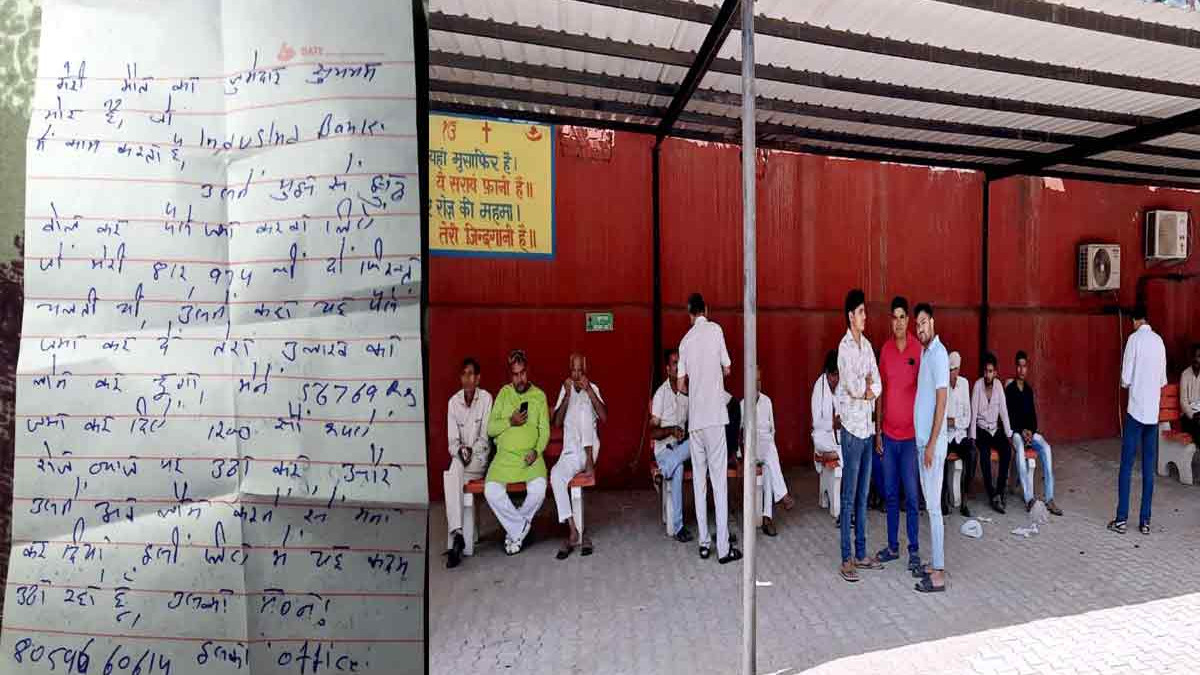 DATE
मेरी मौत का जुमेदार
मोर है, जो
में काम करता है, IndusInd Bank
उसने मुझ से झुठ
बोल कर पैसे जमा करवा लिये
जो मेरी की दो किस्ते
चलती थी, उसने कहा यह पैसे
जमा कर दे तेरा का
लोन कर दूंगा, मेने 56769 Rs
जमा कर दिए 1200 सौ रूपये
रोज ब्याज पर उठा कर,
उसने अब लोन करने से मना
कर दिया इसी लिये मे यह कदम
उठा रहा हूँ, उसका
इसका office
यहां मुसाफिर है।
ये सराये फ़ानी है॥
रोज़ की महमा।
तेरी जिन्दगानी है॥